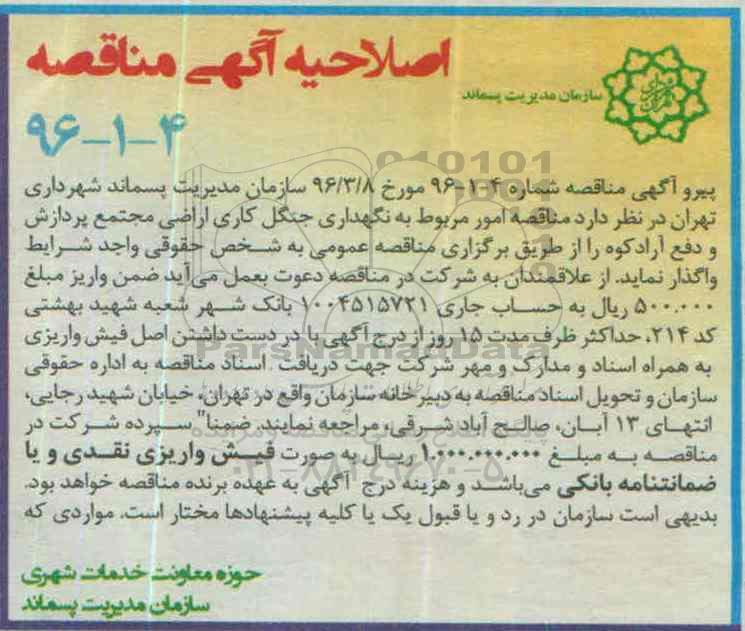 اصلاحیه آگهی مناقصه
سازمان مدیریت پسماند
۹۶-۱-۴
پیرو آگهی مناقصه شماره ۴-۱-۹۶ مورخ ۹۶/۳/۸ سازمان مدیریت پسماند شهرداری
تهران در نظر دارد مناقصه امور مربوط به نگهداری جنگل کاری اراضی مجتمع پردازش
و دفع آرادکوه را از طریق برگزاری مناقصه عمومی به شخص حقوقی واجد شرایط
واگذار نماید. از علاقمندان به شرکت در مناقصه دعوت بعمل می‌آید ضمن واریز مبلغ
۵۰۰.۰۰۰ ریال به حساب جاری ۱۰۰۴۵۱۵۷۲۱ بانک شهر شعبه شهید بهشتی
کد ۲۱۴، حداکثر ظرف مدت ۱۵ روز از درج آگهی با در دست داشتن اصل فیش واریزی
به همراه اسناد و مدارک و مهر شرکت جهت دریافت اسناد مناقصه به اداره حقوقی
سازمان و تحویل اسناد مناقصه به دبیرخانه سازمان واقع در تهران، خیابان شهید رجایی،
انتهای ۱۳ آبان، صالح آباد شرقی، مراجعه نمایند. ضمنا" سپرده شرکت در
مناقصه به مبلغ ۱.۰۰۰.۰۰۰.۰۰۰ ریال به صورت فیش واریزی نقدی و یا
ضمانتنامه بانکی می‌باشد و هزینه درج آگهی به عهده برنده مناقصه خواهد بود.
بدیهی است سازمان در رد و یا قبول یک یا کلیه پیشنهادها مختار است. مواردی که
حوزه معاونت خدمات شهری
سازمان مدیریت پسماند
ParsNamadData